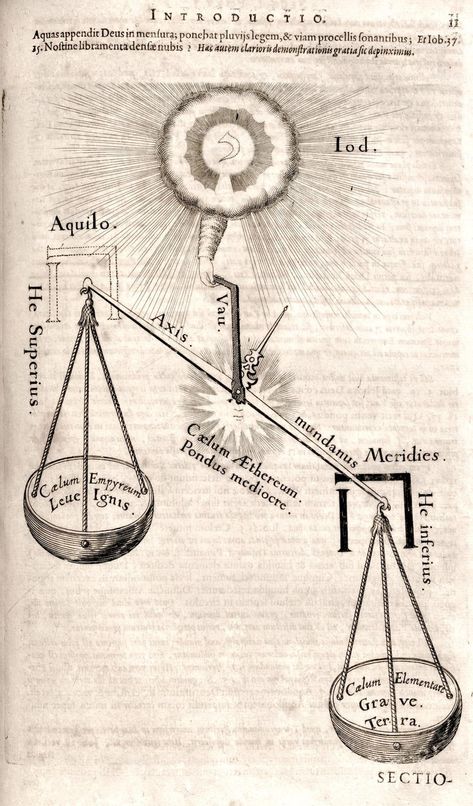 INTRODUCTIO.
11
Aquas appendit Deus in mensura; ponebat pluvijs legem, & viam procellis sonantibus; Et Iob. 37.
15. Nostine libramenta densæ nubis? Hæc autem clarioris demonstrationis gratia sic depinximus.
Iod.
Aquilo.
He Superius.
Vau.
Axis.
mundanus
Cælum Æthereum.
Pondus mediocre.
Meridies.
He inferius.
Cælum Empyreum
Leue Ignis.
Cælum Elementare
Grave.
Terra.
SECTIO-